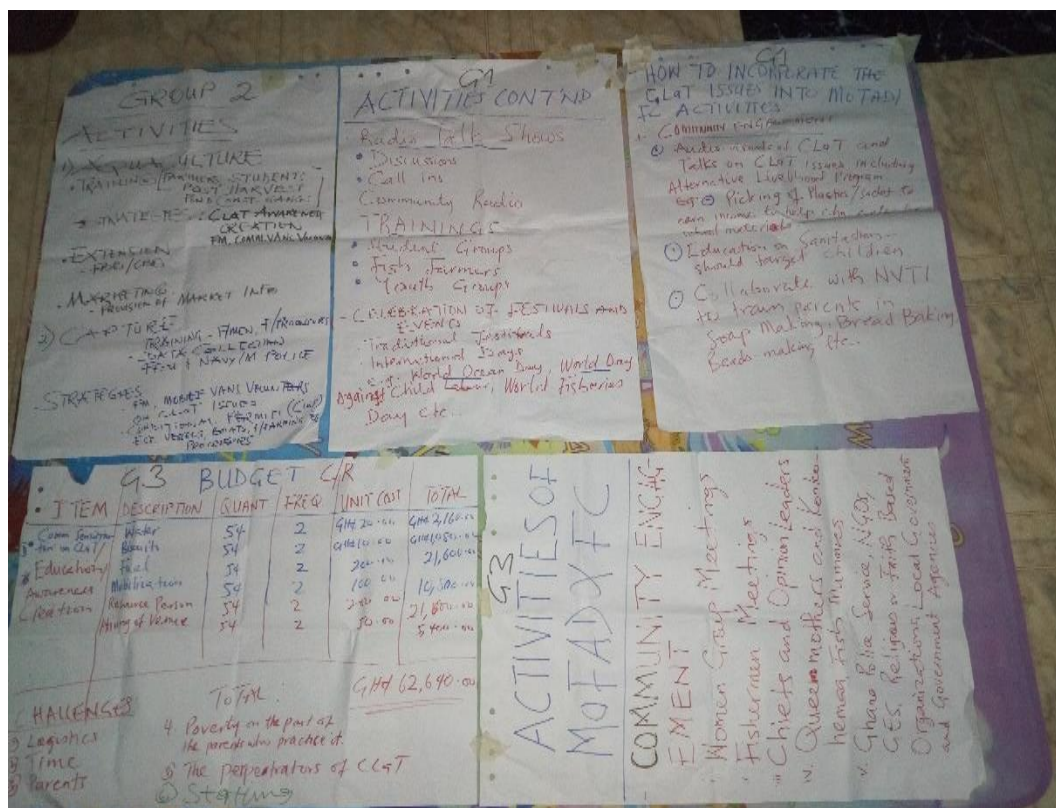 GROUP 2
ACTIVITIES
1) AQUACULTURE
- TRAINING / FARMERS, STUDENTS
POST HARVEST
- STRATEGIES: CLAT AWARENESS
CREATION
- EXTENSION
- MARKETING
- PROVISION OF MARKET INFO
2) CAPTURE
TRAINING - F/MEN, F/PROCESSORS
- DATA COLLECTION
NAVY/M POLICE
- STRATEGIES
- FM, MOBILE VANS
ON CLAT ISSUES
G1
ACTIVITIES CONT'ND
Radio Talk Shows
• Discussions
• Call ins
Community Radio
TRAININGS
• Student Groups
• Fish Farmers
• Youth Groups
- CELEBRATION OF FESTIVALS AND
EVENTS
- Traditional Festivals
- International Days
e.g. World Ocean Day, World Day
Against Child Labour, World Fisheries
Day etc..
G1
HOW TO INCORPORATE THE
CLaT ISSUES INTO MOFAD/
FC ACTIVITIES
- COMMUNITY ENGAGEMENT
Audio-visuals of CLaT and
Talks on CLaT issues including
Alternative Livelihood Program
Picking of Plastics/sachet to
earn income to help
school materials
Education on Sanitation -
should target children
Collaborate with NVTI
to train parents in
Soap Making, Bread Baking,
Beads making, etc..
G3 BUDGET C/R
ITEM DESCRIPTION QUANT FREQ UNIT COST TOTAL
Water 54 2 GH¢ 20.00 GH¢ 2,160.00
Biscuits 54 2
Education/ Fuel 54 2 200.00 21,600.00
Awareness Mobilization 54 2 100.00
Creation Resource Person 54 2 200.00 21,600.00
Hiring of Venue 54 2 50.00 5,400.00
TOTAL GH¢ 62,640.00
CHALLENGES
1) Logistics
2) Time
3) Parents
4. Poverty on the part of
the parents who practise it.
5) The perpetrators of CLaT
G3
ACTIVITIES OF
MOFAD & FC
COMMUNITY ENGAG-
EMENT
i. Women Group Meetings
ii. Fishermen Meetings
iii. Chiefs and Opinion Leaders
iv. Queenmothers and Konko-
hemaa Fish Mummies
v. Ghana Police Service, NGOs,
GES, Religious or Faith Based
Organizations, Local Government
and Government Agencies